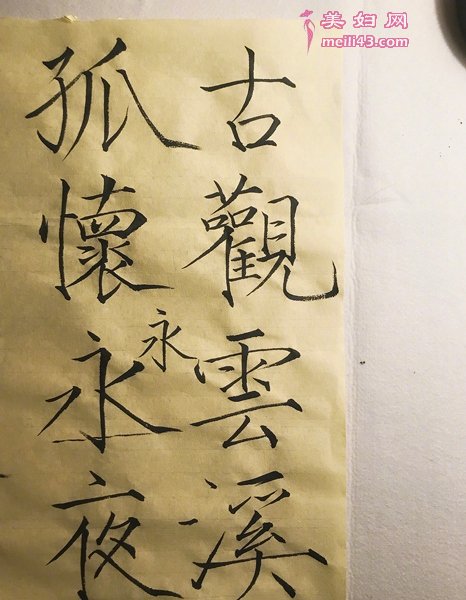 美妇网
meili43.com
古觀雲溪
孤懷永夜
永